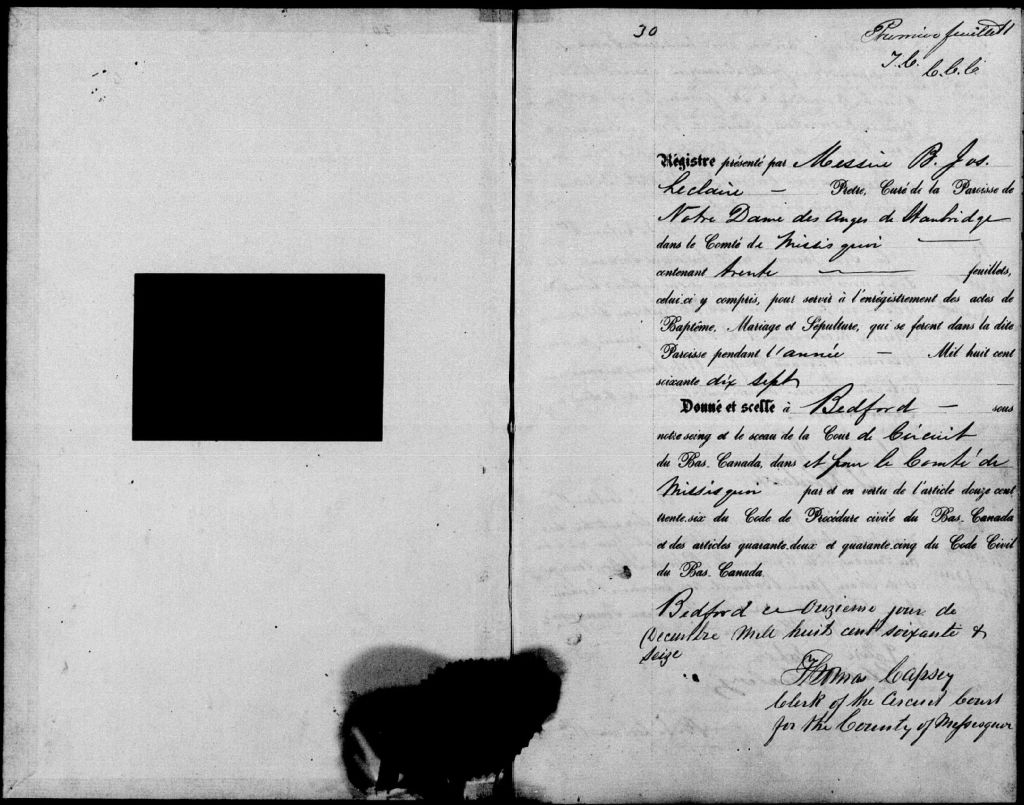 30
Premier feuillet
T.C.
C.C.C.
Régistre présenté par Messire B. Jos.
Leclaire – Prêtre, Curé de la Paroisse de
Notre Dame des Anges de Stanbridge
dans le Comté de Missisquoi
contenant trente feuillets,
celui-ci y compris, pour servir à l'enrégistrement des actes de
Baptême, Mariage et Sépulture, qui se feront dans la dite
Paroisse pendant l'année – Mil huit cent
soixante dix sept
Donné et scellé à Bedford – sous
notre seing et le sceau de la Cour de Circuit
du Bas-Canada, dans et pour le Comté de
Missisquoi par et en vertu de l'article douze cent
trente-six du Code de Procédure civile du Bas-Canada
et des articles quarante-deux et quarante-cinq du Code Civil
du Bas-Canada.
Bedford ce Onzieme jour de
Decembre Mill huit cent soixante &
Seize
Thomas Capsey
Clerk of the Circuit Court
for the County of Missisquoi